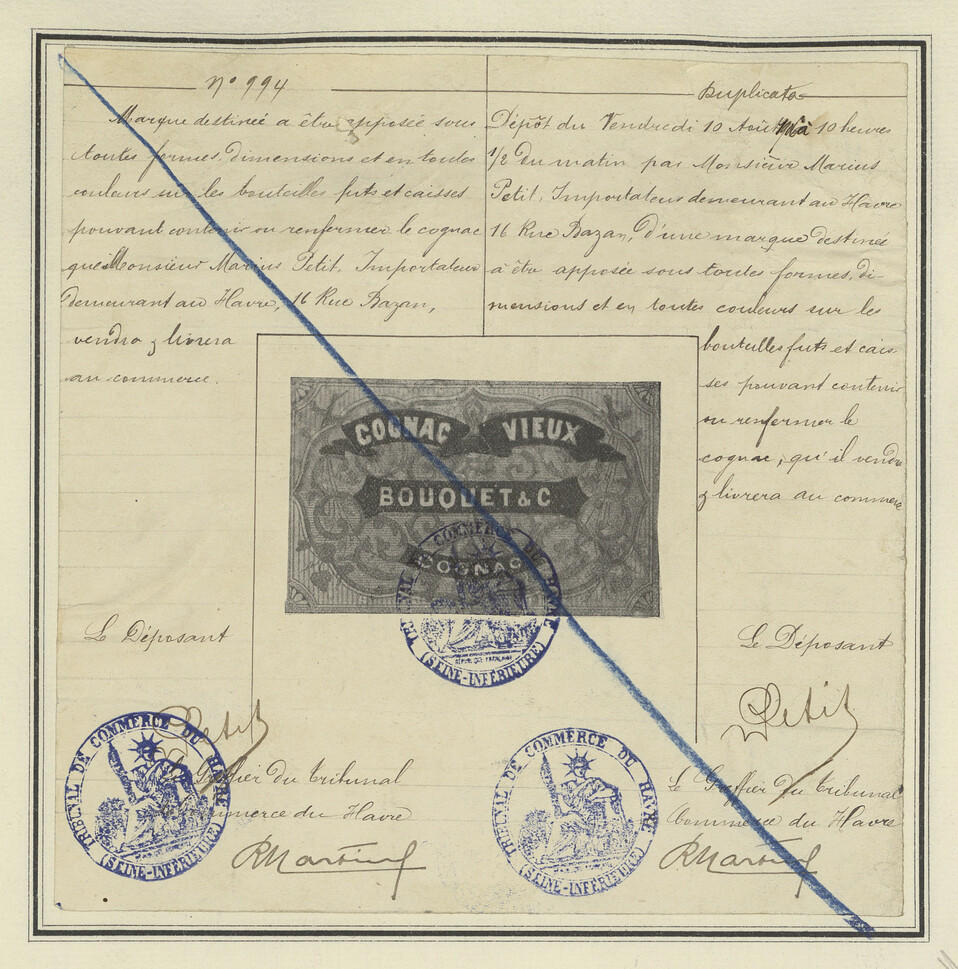 Nº 994
Marque destinée a être apposée sous
toutes formes, dimensions et en toutes
couleurs sur les bouteilles futs et caisses
pouvant contenir ou renfermer le cognac
que Monsieur Marius Petit, Importateur
demeurant au Havre, 16 Rue Bazan,
vendra & livrera
au commerce.
Duplicata
Dépôt du Vendredi 10 Août à 10 heures
1/2 du matin par Monsieur Marius
Petit, Importateur demeurant au Havre
16 Rue Bazan, d'une marque destinée
à être apposée sous toutes formes, di-
mensions et en toutes couleurs sur les
bouteilles futs et cais-
ses pouvant contenir
ou renfermer le
cognac, qu'il vendra
& livrera au commerce
COGNAC VIEUX
BOUQUET & C
COGNAC
TRIBUNAL DE COMMERCE DU HAVRE
(SEINE-INFÉRIEURE)
Le Déposant
Petit
Greffier du tribunal
Commerce du Havre
RMartin
TRIBUNAL DE COMMERCE DU HAVRE
(SEINE-INFÉRIEURE)
TRIBUNAL DE COMMERCE DU HAVRE
(SEINE-INFÉRIEURE)
Le Déposant
Petit
Le Greffier du tribunal
Commerce du Havre
RMartin